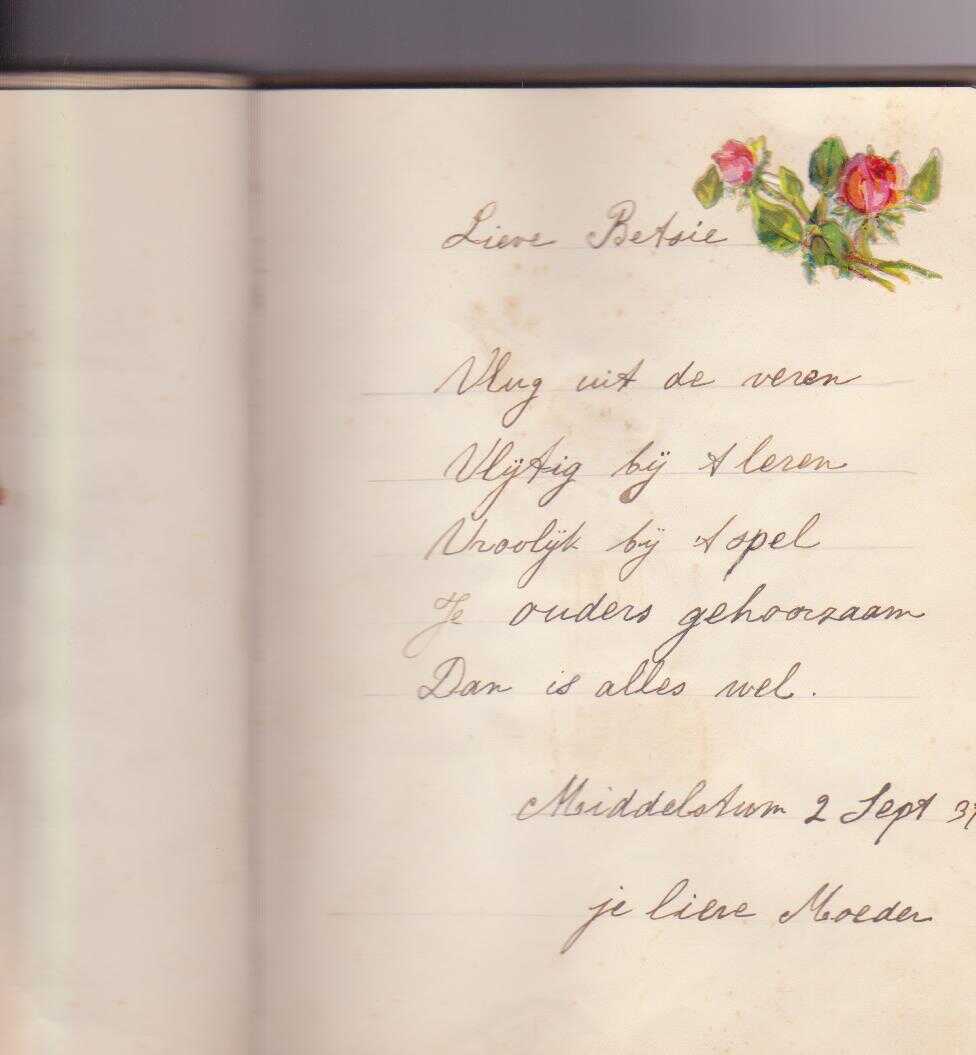 Lieve Betsie
Vlug uit de veren
Vlijtig bij 't leren
Vroolijk bij 't spel
Je ouders gehoorzaam
Dan is alles wel.
Middelstum 2 Sept
je lieve Moeder